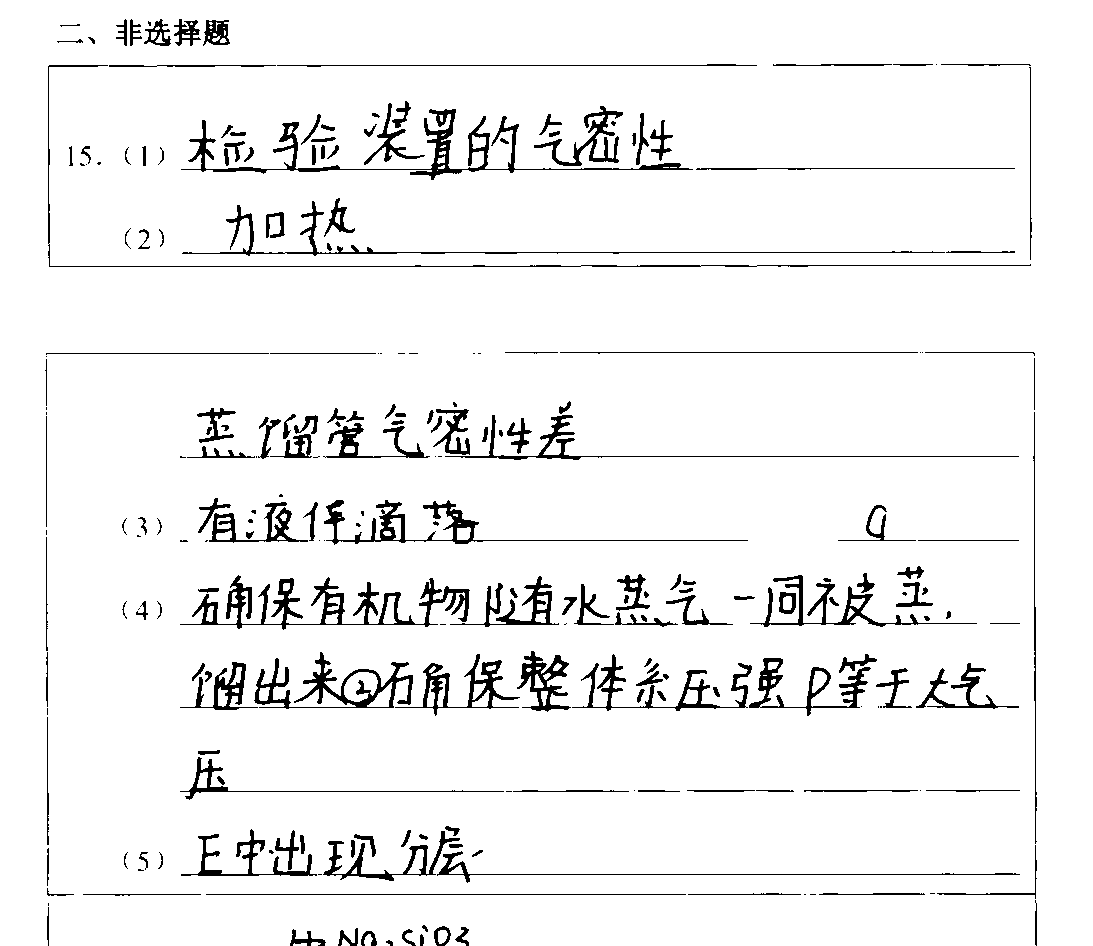 二、非选择题
15.（1）检验装置的气密性
（2）加热
蒸馏管气密性差
（3）有液体滴落 a
（4）确保有机物随有水蒸气一同被蒸
馏出来②确保整体系压强P等于大气
压
（5）E中出现分层
Na2SiO3